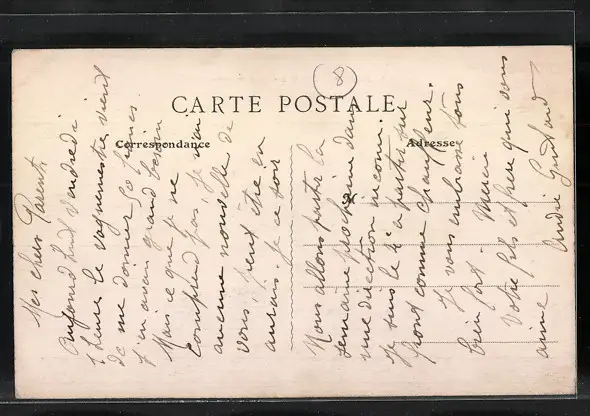 CARTE POSTALE
Correspondance
Adresse
Mes chers Parents
Aujourd'hui vendredi
1 heure le vaguemestre vient
de me donner 50 francs.
J'en avais grand besoin
Mais ce que je ne
comprend pas, je n'ai
aucune nouvelle de
vous, peut être en
aurais-je ce soir
Nous allons partir la
semaine prochaine dans
une direction inconnu.
Je suis le à partir sur
front comme chauffeur.
Je vous embrasse tous
bien fort. Merci
Votre fils et frère qui vous
aime
André